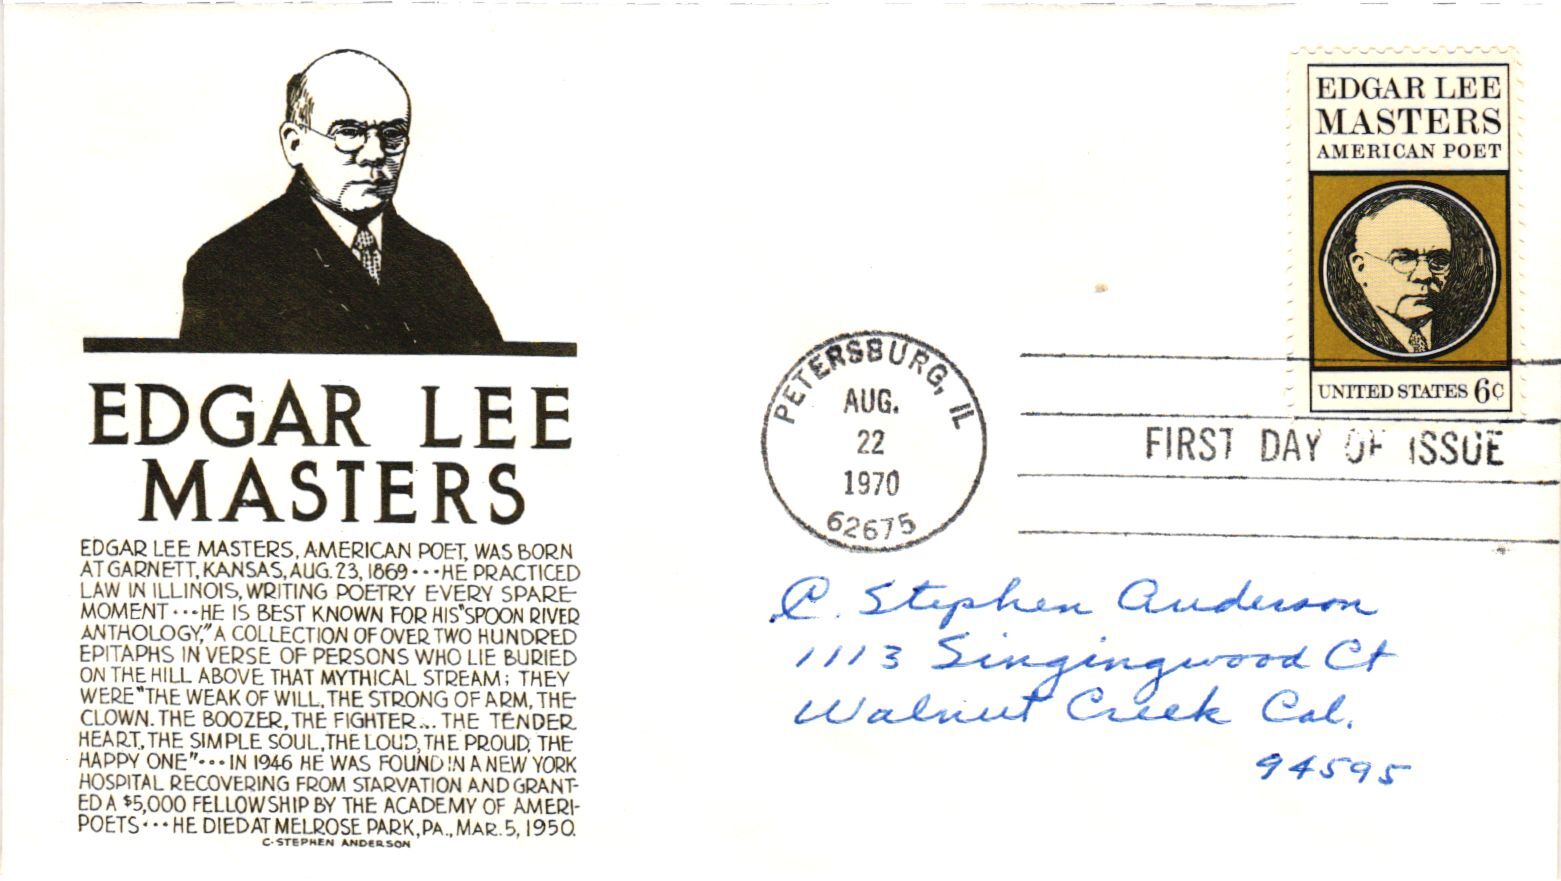 EDGAR LEE
MASTERS
EDGAR LEE MASTERS, AMERICAN POET, WAS BORN
AT GARNETT, KANSAS, AUG. 23, 1869 ••• HE PRACTICED
LAW IN ILLINOIS, WRITING POETRY EVERY SPARE-
MOMENT ••• HE IS BEST KNOWN FOR HIS "SPOON RIVER
ANTHOLOGY," A COLLECTION OF OVER TWO HUNDRED
EPITAPHS IN VERSE OF PERSONS WHO LIE BURIED
ON THE HILL ABOVE THAT MYTHICAL STREAM; THEY
WERE "THE WEAK OF WILL, THE STRONG OF ARM, THE
CLOWN. THE BOOZER, THE FIGHTER... THE TENDER
HEART, THE SIMPLE SOUL, THE LOUD, THE PROUD, THE
HAPPY ONE" ••• IN 1946 HE WAS FOUND IN A NEW YORK
HOSPITAL RECOVERING FROM STARVATION AND GRANT-
ED A $5,000 FELLOWSHIP BY THE ACADEMY OF AMERI-
POETS ••• HE DIED AT MELROSE PARK, PA., MAR. 5, 1950.
C. STEPHEN ANDERSON
EDGAR LEE
MASTERS
AMERICAN POET
UNITED STATES 6¢
PETERSBURG, IL
AUG.
22
1970
62675
FIRST DAY OF ISSUE
C. Stephen Anderson
1113 Singingwood Ct
Walnut Creek Cal.
94595